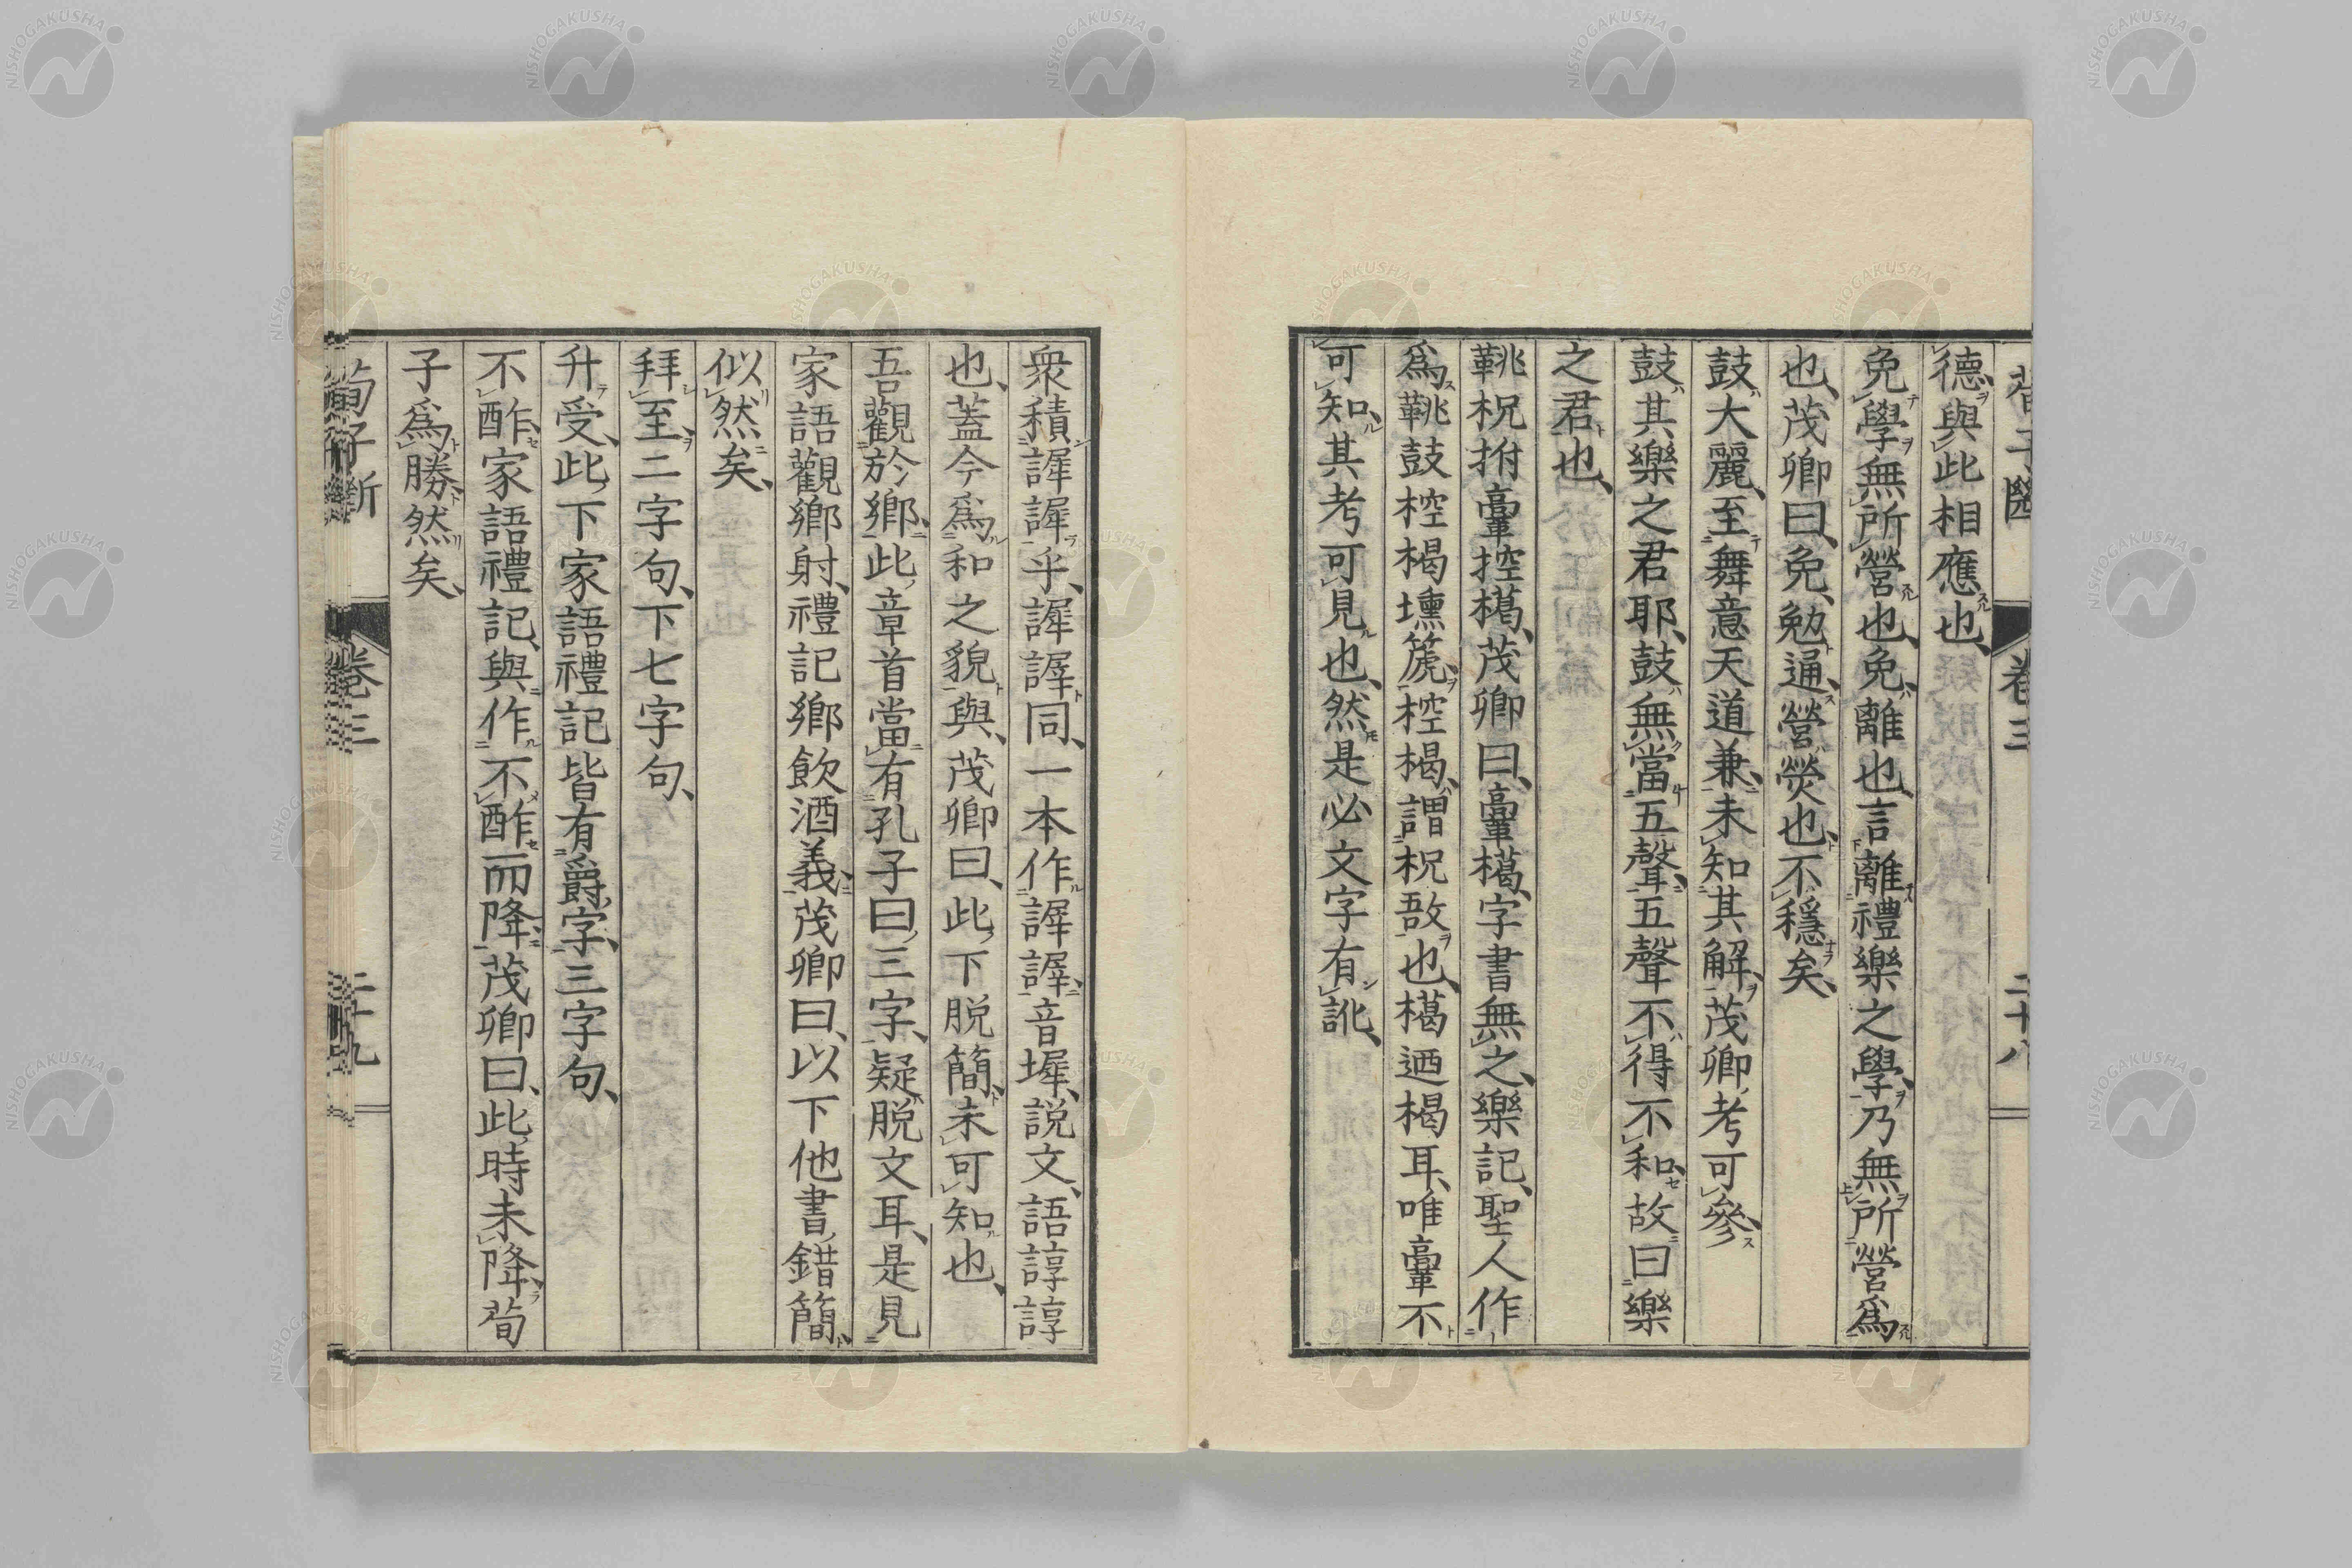 德、與此相應也、
免學無所營也、免、離也、言離禮樂之學、乃無所營爲
也、茂卿曰、免、勉通、營熒也、不穩矣、
鼓大麗、至舞意天道兼、未知其解、茂卿考可參、
鼓其樂之君耶、鼓無當五聲、五聲不得不和、故曰樂
之君也、
鞉柷拊鞷控楬、茂卿曰、鞷楬、字書無之、樂記、聖人作
爲鞉鼓椌楬壎篪、椌楬、謂柷敔也、楬迺楬耳、唯鞷不
可知、其考可見也、然是必文字有訛、
卷三
二十八
衆積謘謘乎、謘謘同、一本作謘謘、音墀、説文、語諄諄
也、蓋今爲和之貌、與茂卿曰、此下脱簡、未可知也、
吾觀於鄉、此章首當有孔子曰三字、疑脱文耳、是見
家語觀鄉射、禮記鄉飲酒義、茂卿曰、以下他書錯簡、
似然矣、
拜至、二字句、下七字句、
升受、此下家語禮記皆有爵字、三字句、
不酢、家語禮記、與作不酢而降、茂卿曰、此時未降、荀
子爲勝、然矣、
荀子斷
卷三
二十九
NISHOGAKUSHA